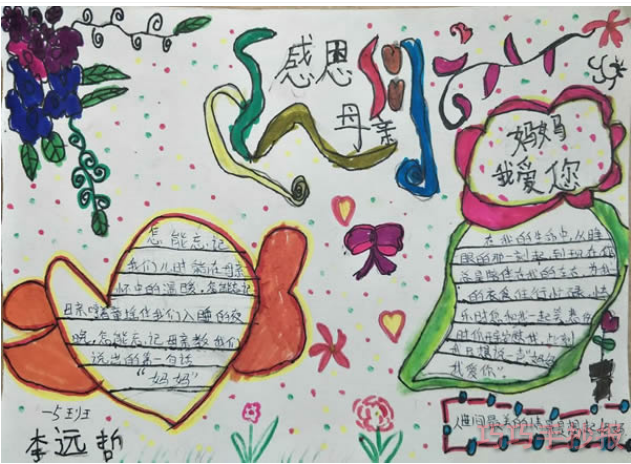 感恩
母亲
妈妈
我爱您
怎能忘记
我们儿时能在母亲
怀中的温暖,怎能忘记
母亲唱着摇伴我们入睡的夜
晚,怎能忘记母亲教我们
说出的第一句话
“妈妈”
在我的生活中,从睁
眼的那一刻起,到现在你
总是陪伴在我的左右,为我
的衣食住行
乐时您和我一起
我只想说一声“妈妈
我爱你”。
一5班
李远哲
人世间最美的